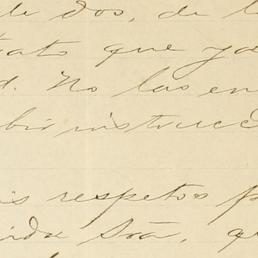 de dos, de l
ato que ya
d. No las en
bir instrucc
is respetos p
ida Sra, qu